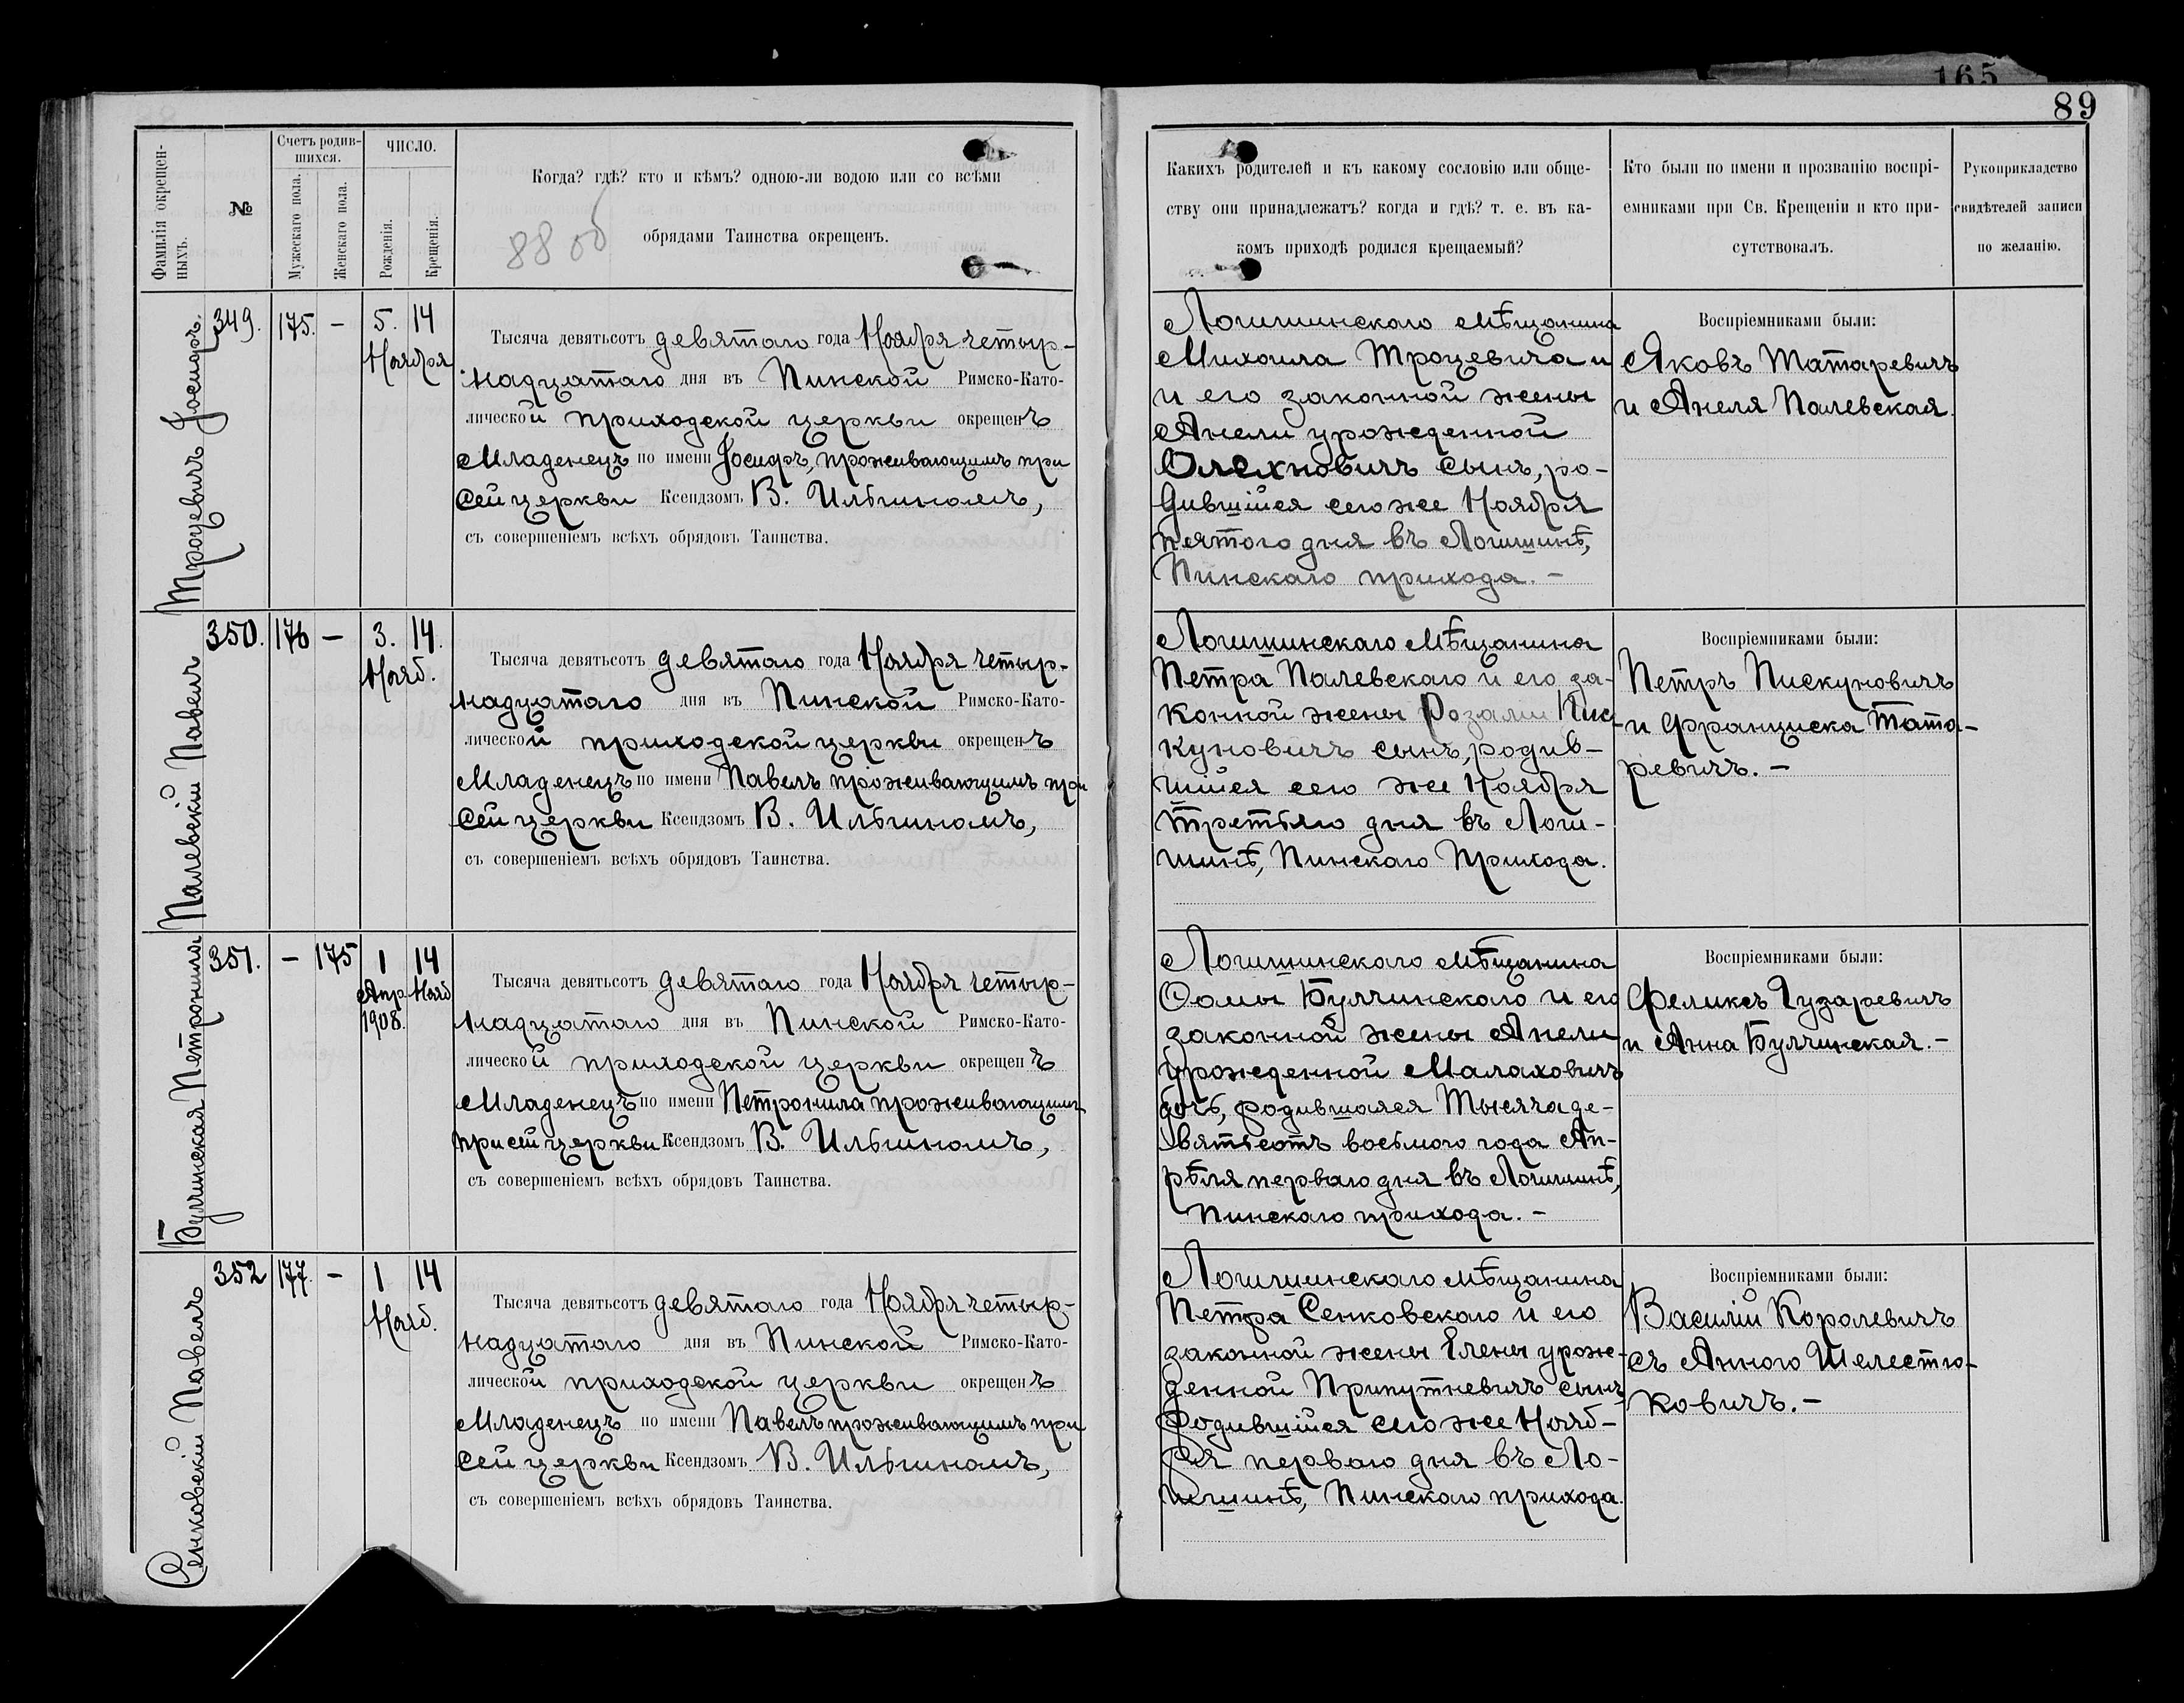 165
89
Фамилія окрещен-
ныхъ.
№
Счетъ родив-
шихся.
Мужескаго пола.
Женскаго пола.
ЧИСЛО.
Рожденія.
Крещенія.
Когда? гдѣ? кто и кѣмъ? одною-ли водою или со всѣми
обрядами Таинства окрещенъ.
88 об
Какихъ родителей и къ какому сословію или обще-
ству они принадлежатъ? когда и гдѣ? т. е. въ ка-
комъ приходѣ родился крещаемый?
Кто были по имени и прозванію воспрі-
емниками при Св. Крещеніи и кто при-
сутствовалъ.
Рукоприкладство
свидѣтелей записи
по желанію.
Троцевичъ Іосифъ.
349.
175.
–
5.
14
Ноября
Тысяча девятьсотъ девятаго года Ноября четыр-
надцатаго дня въ Пинской Римско-Като-
лической приходской церкви окрещенъ
Младенецъ по имени Іосифъ, проживающимъ при
сей церкви Ксендзомъ В. Ильгиномъ,
съ совершеніемъ всѣхъ обрядовъ Таинства.
Логишинскаго мѣщанина
Михаила Троцевича и
и его законной жены
Анели урожденной
Олехновичъ сынъ, ро-
дившійся сего же Ноября
пятого дня въ Логишинѣ,
Пинскаго прихода. –
Воспріемниками были:
Яковъ Татаревичъ
и Анеля Палевская.
Палевскій Павелъ
350.
176
–
3.
14.
Нояб.
Тысяча девятьсотъ девятаго года Ноября четыр-
надцатаго дня въ Пинской Римско-Като-
лической приходской церкви окрещенъ
Младенецъ по имени Павелъ проживающимъ при
сей церкви Ксендзомъ В. Ильгиномъ,
съ совершеніемъ всѣхъ обрядовъ Таинства.
Логишинскаго мѣщанина
Петра Палевскаго и его за-
конной жены Розаліи Пис-
куновичъ сынъ, родив-
шійся сего же Ноября
третьяго дня въ Логи-
шинѣ, Пинскаго Прихода.
Воспріемниками были:
Петръ Пискуновичъ
и Франциска Тата-
ревичъ. –
Булчинская Петронила
351.
–
175
1
14
Апр.
Нояб
1908.
Тысяча девятьсотъ девятаго года Ноября четыр-
надцатаго дня въ Пинской Римско-Като-
лической приходской церкви окрещенъ
Младенецъ по имени Петронила проживающимъ
при сей церкви Ксендзомъ В. Ильгиномъ,
съ совершеніемъ всѣхъ обрядовъ Таинства.
Логишинскаго мѣщанина
Ѳомы Булчинскаго и его
законной жены Анели
урожденной Малаховичъ
дочь, родившаяся Тысяча де-
вятьсотъ восьмого года Ап-
рѣля перваго дня въ Логишинѣ,
Пинскаго прихода. –
Воспріемниками были:
Феликсъ Гузаревичъ
и Анна Булчинская. –
Сенковскій Павелъ
352
177.
–
1
14
Нояб.
Тысяча девятьсотъ девятаго года Ноября четыр-
надцатаго дня въ Пинской Римско-Като-
лической приходской церкви окрещенъ
Младенецъ по имени Павелъ проживающимъ при
сей церкви Ксендзомъ В. Ильгиномъ,
съ совершеніемъ всѣхъ обрядовъ Таинства.
Логишинскаго мѣщанина
Петра Сенковскаго и его
законной жены Елены урож-
денной Припутневичъ сынъ
родившійся сего же Нояб-
ря перваго дня въ Ло-
гишинѣ, Пинскаго прихода.
Воспріемниками были:
Василій Королевичъ
съ Анною Шелестю-
ковичъ. –